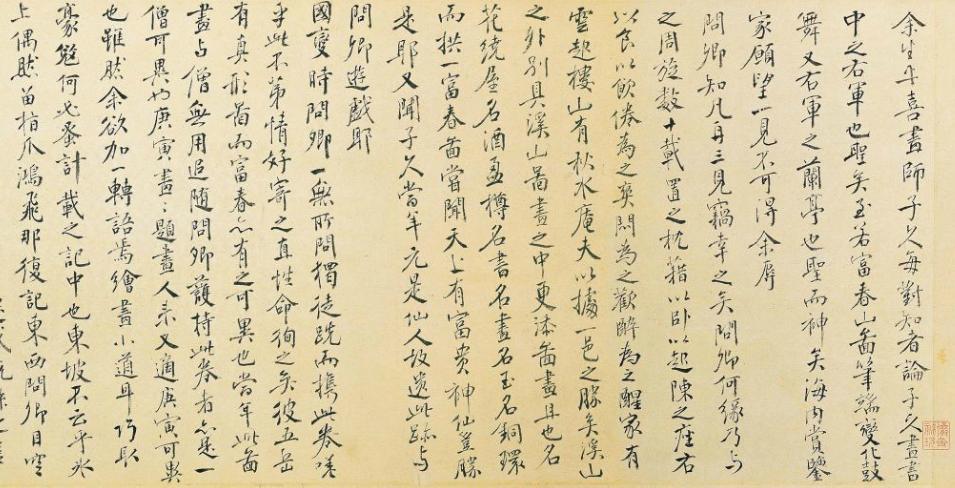 余生平喜畫師子久每對知者論子久畫書
中之右軍也聖矣至若富春山啚筆端變化鼓
舞又右軍之蘭亭也聖而神矣海內賞鑒
家願望一見不可得余辱
問卿知凡再三見竊幸之矣問卿何緣乃与
之周旋數十載置之枕藉以臥以起陳之座右
以食以飲倦為之爽悶為之歡醉為之醒家有
雲起樓山有秋水庵夫以據一邑之勝矣溪山
之外別具溪山啚畫之中更添啚畫且也名
花繞屋名酒盈樽名書名畫名玉名銅環
而拱一富春啚嘗聞天上有富貴神仙豈勝
是耶又聞子久當年元是仙人故遺此跡与
問卿遊戲耶
國變時問卿一無所問獨徒跣而攜此卷嗟
乎此不第情好寄之直性命徇之矣彼五岳
有真形啚而富春亦有之可異也當年此啚
畫与僧無用追隨問卿護持此卷者亦是一
僧可異也庚寅畫畫題畫人來又適庚寅可異
也雖然余欲加一轉語焉繪畫小道耳巧取
豪奪何必蚤計載之記中也東坡不云乎冰
上偶然留指爪鴻飛那復記東西問卿目空